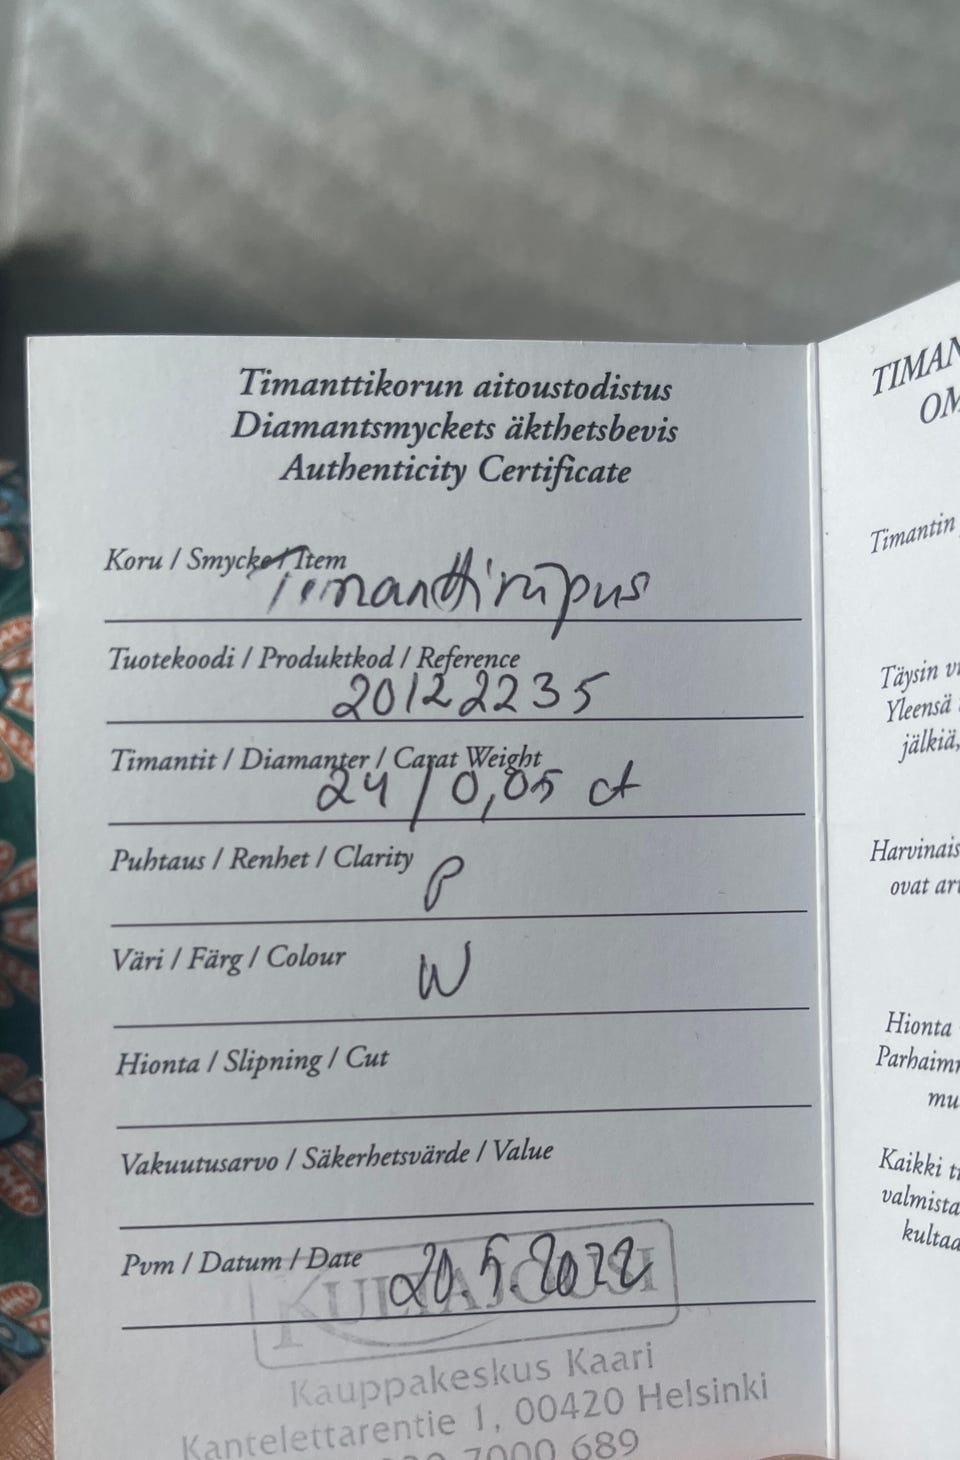 Timanttikorun aitoustodistus
Diamantsmyckets äkthetsbevis
Authenticity Certificate
Koru / Smycket / Item
Timanttiripus
Tuotekoodi / Produktkod / Reference
20122235
Timantit / Diamanter / Carat Weight
24 / 0,05 ct
Puhtaus / Renhet / Clarity
P
Väri / Färg / Colour
W
Hionta / Slipning / Cut
Vakuutusarvo / Säkerhetsvärde / Value
Pvm / Datum / Date
20.5.2022
KULTAJOUSI
Kauppakeskus Kaari
Kantelettarentie 1, 00420 Helsinki
7000 689
TIMAN
OM
Timantin
Täysin
Yleensä
jälkiä,
Harvinais
ovat
Hionta
Parhaim
mu
Kaikki
valmista
kultaa